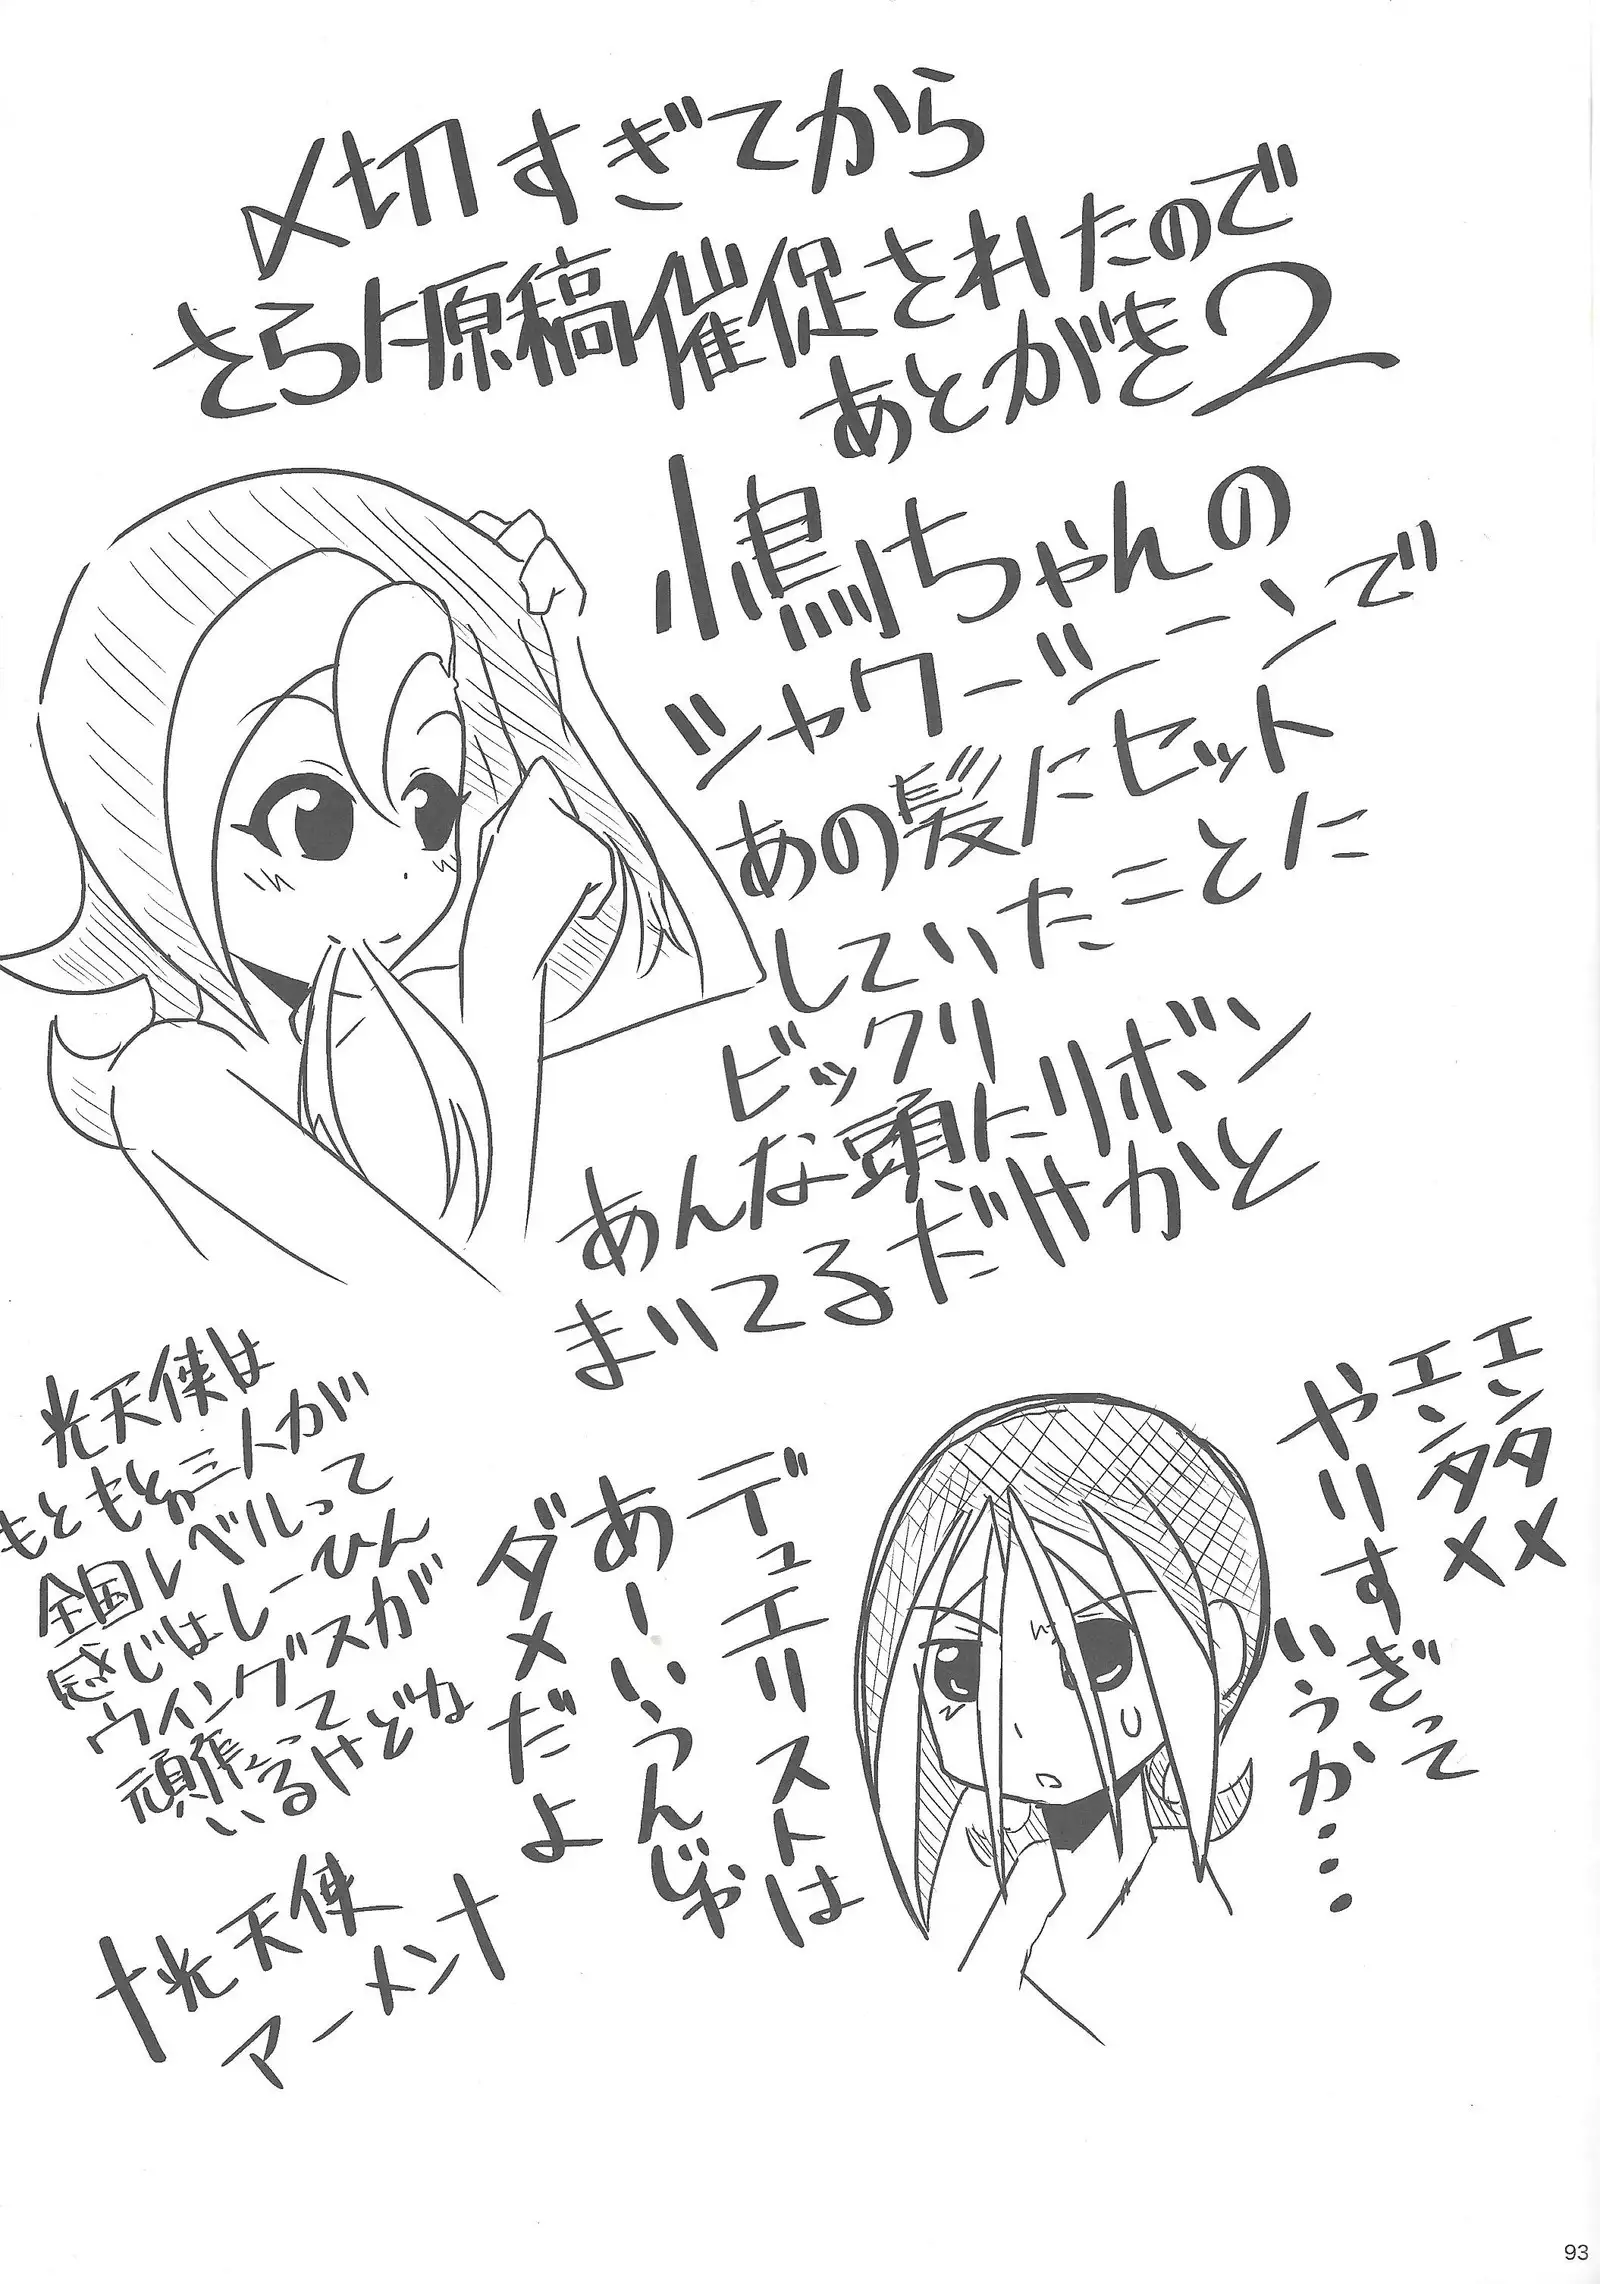 〆切すぎてから
さらに原稿催促されたので
あとがき2
小鳥ちゃんの
シャワーシーンで
あの髪にセット
していたことに
ビックリ
あんな頭にリボン
まいてるだけかと
エンタメ
エンタメ
やりすぎって
いうか・・・
デュエリストは
あーいうんじゃ
ダメだよ
光天使は
もともとが三人が
全国レベルって
感じはしーひん
ウイングスが
頑張って
いるけどな
†光天使
アーメン†
93